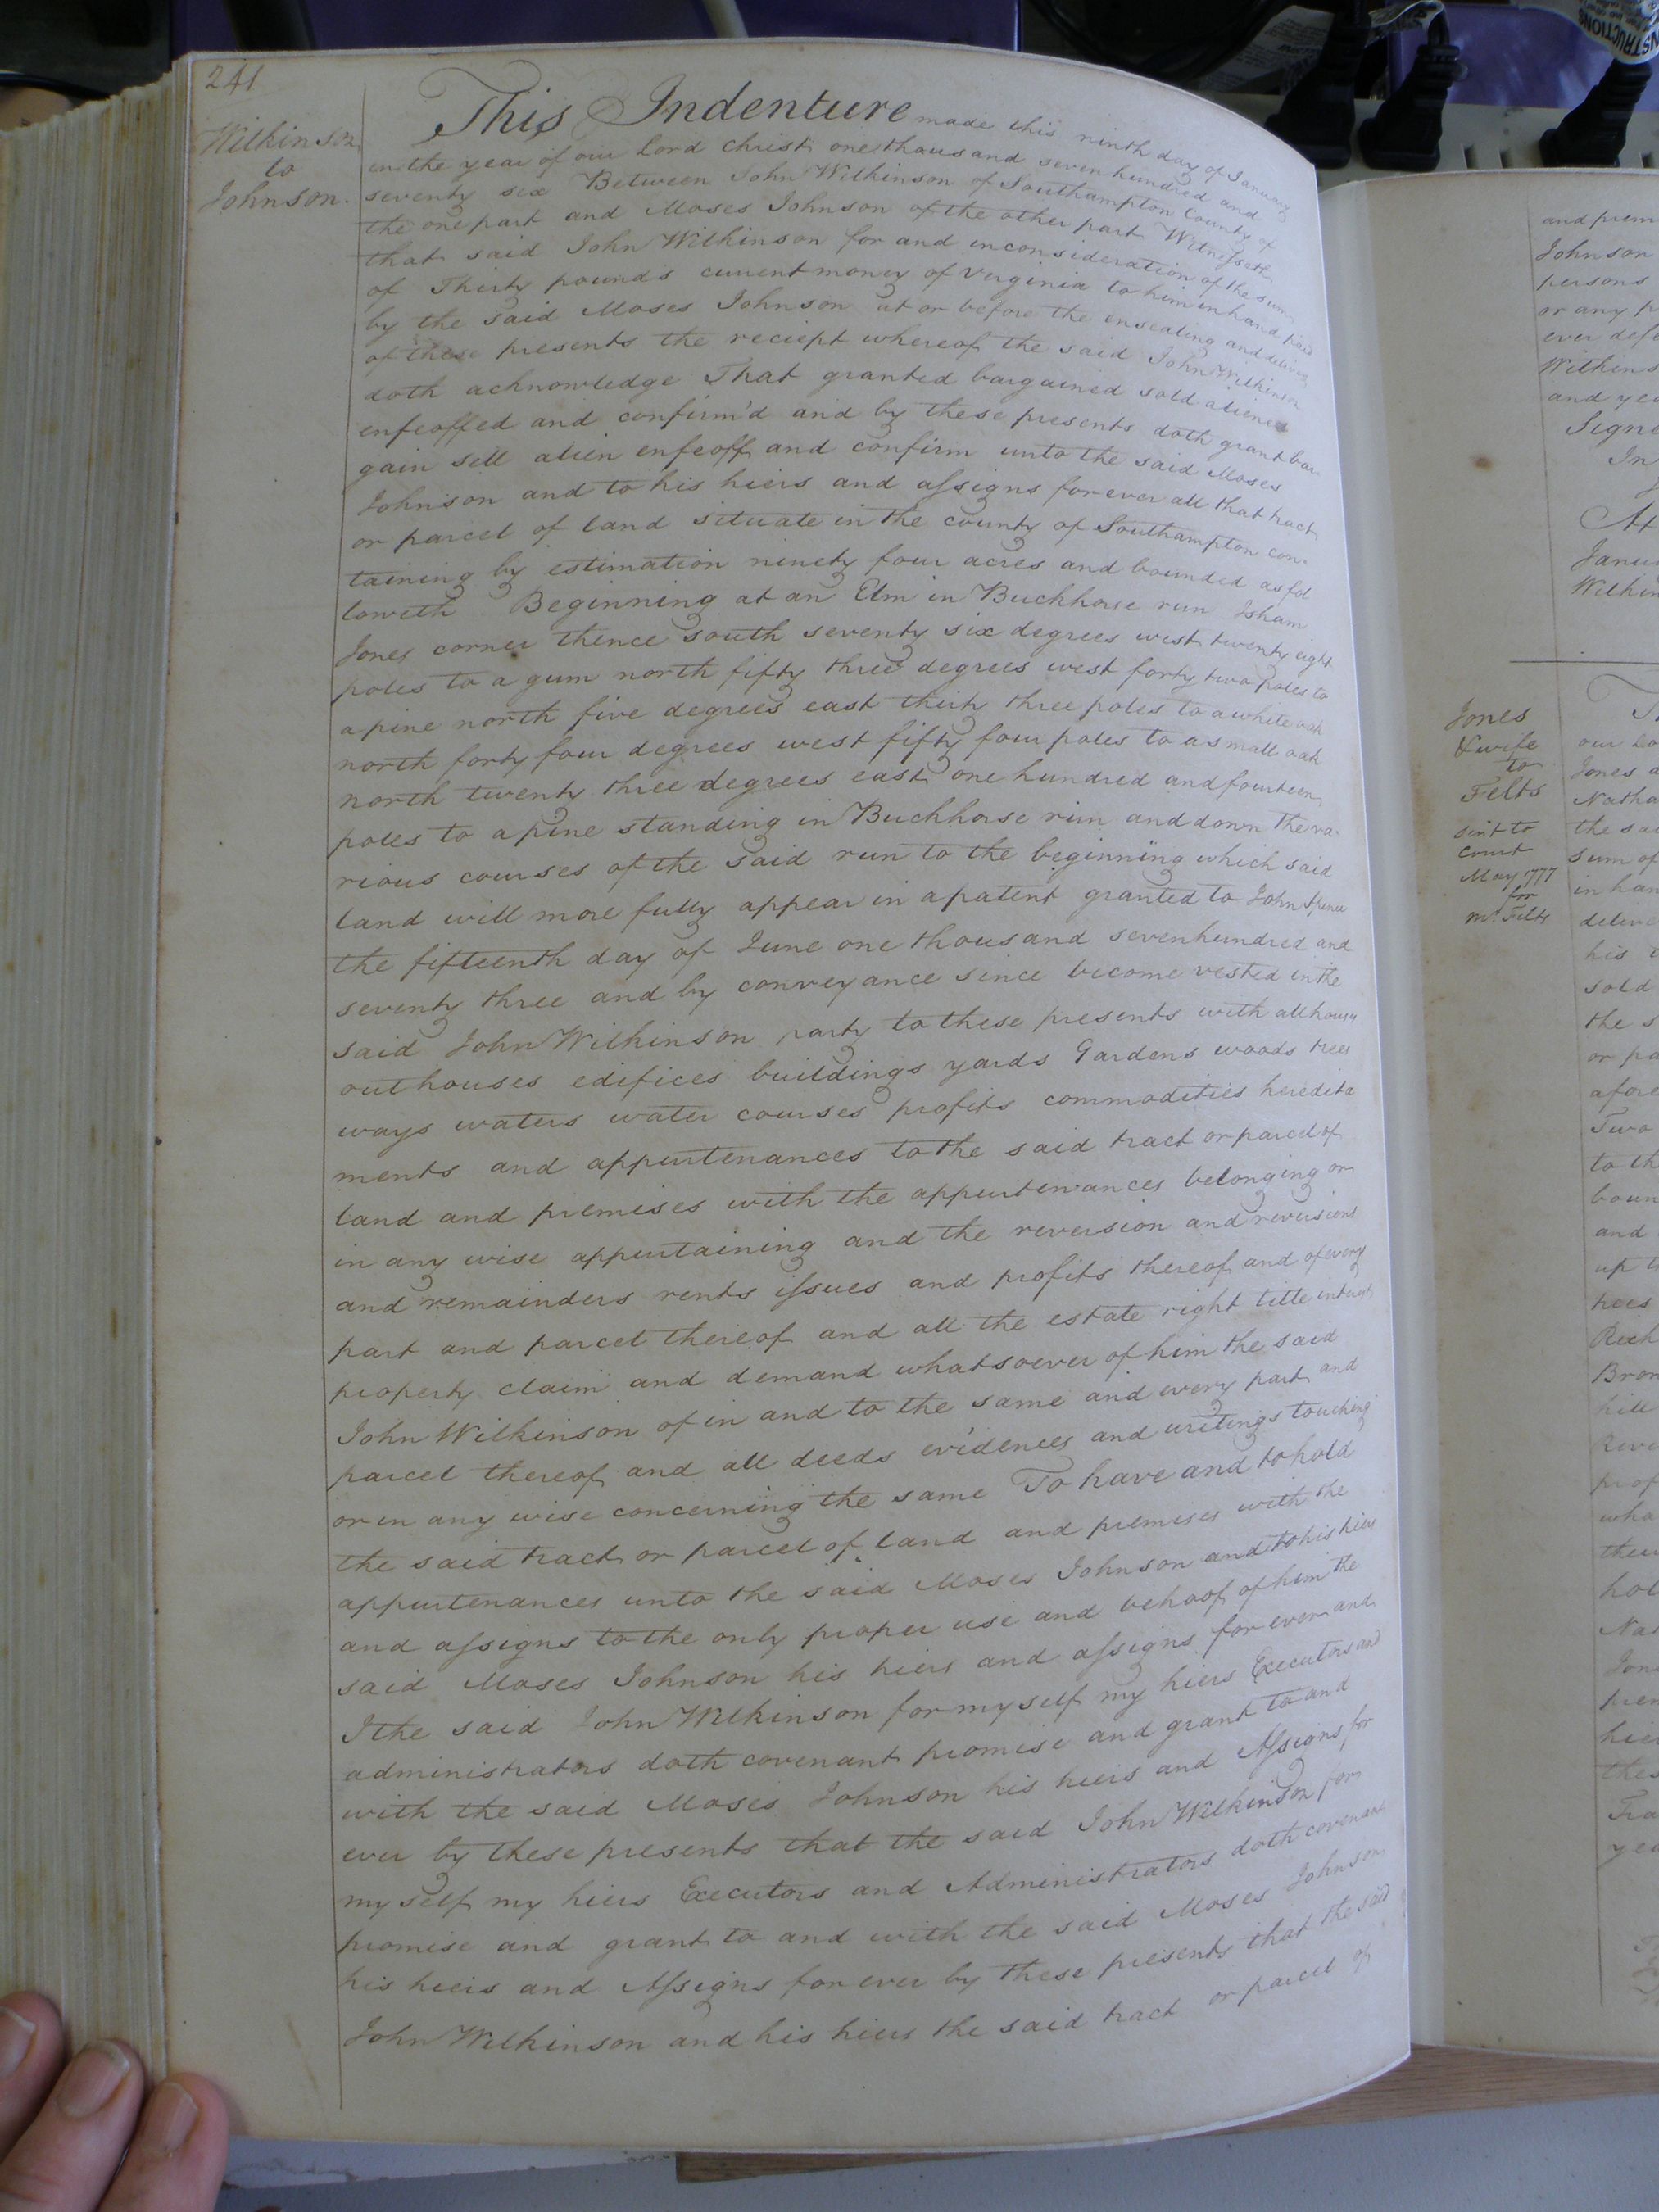 241
Wilkinson
to
Johnson.
This Indenture made this ninth day of January
in the year of our Lord Christ one thousand seven hundred and
seventy six Between John Wilkinson of Southampton County of
the one part and Moses Johnson of the other part Witnesseth
that said John Wilkinson for and in consideration of the sum
of Thirty pounds current money of Verginia to him in hand paid
by the said Moses Johnson at or before the ensealing and delivery
of these presents the reciept whereof the said John Wilkinson
doth acknowledge That granted bargained sold aliened
enfeoffed and confirm'd and by these presents doth grant bar-
gain sell alien enfeoff and confirm unto the said Moses
Johnson and to his hiers and assigns for ever all that tract
or parcel of land situate in the county of Southampton con-
taining by estimation ninety four acres and bounded as fol
loweth Beginning at an Elm in Buckhorse run Isham
Jones corner thence south seventy six degrees west twenty eight
poles to a gum north fifty three degrees west forty two poles to
a pine north five degrees east thirty three poles to a white oak
north forty four degrees west fifty four poles to a small oak
north twenty three degrees east one hundred and fourteen
poles to a pine standing in Buckhorse run and down the va-
rious courses of the said run to the beginning which said
land will more fully appear in a patent granted to John Spence
the fifteenth day of June one thousand seven hundred and
seventy three and by conveyance since become vested in the
said John Wilkinson party to these presents with all houses
outhouses edifices buildings yards Gardens woods trees
ways waters water courses profits commodities heredita
ments and appurtenances to the said tract or parcel of
land and premises with the appurtenances belonging or
in any wise appurtaining and the reversion and reversions
and remainders rents issues and profits thereof and of every
part and parcel thereof and all the estate right title interest
property claim and demand whatsoever of him the said
John Wilkinson of in and to the same and every part and
parcel thereof and all deeds evidences and writings touching
or in any wise concerning the same To have and to hold
the said tract or parcel of land and premises with the
appurtenances unto the said Moses Johnson and to his hiers
and assigns to the only proper use and behoof of him the
said Moses Johnson his hiers and assigns for ever and
I the said John Wilkinson for my self my hiers Executors and
administrators doth covenant promise and grant to and
with the said Moses Johnson his hiers and Assigns for
ever by these presents that the said John Wilkinson for
my self my hiers Executors and Administrators doth covenant
promise and grant to and with the said Moses Johnson
his hiers and Assigns for ever by these presents that the said
John Wilkinson and his hiers the said tract or parcel of
Johnson
persons
or any
and
Jones
&wife
to
Felts
sent to
court
May 1777
for
Mr. Felts
our
Jones
the
sum of
in
his
sold
the
or
Two
and